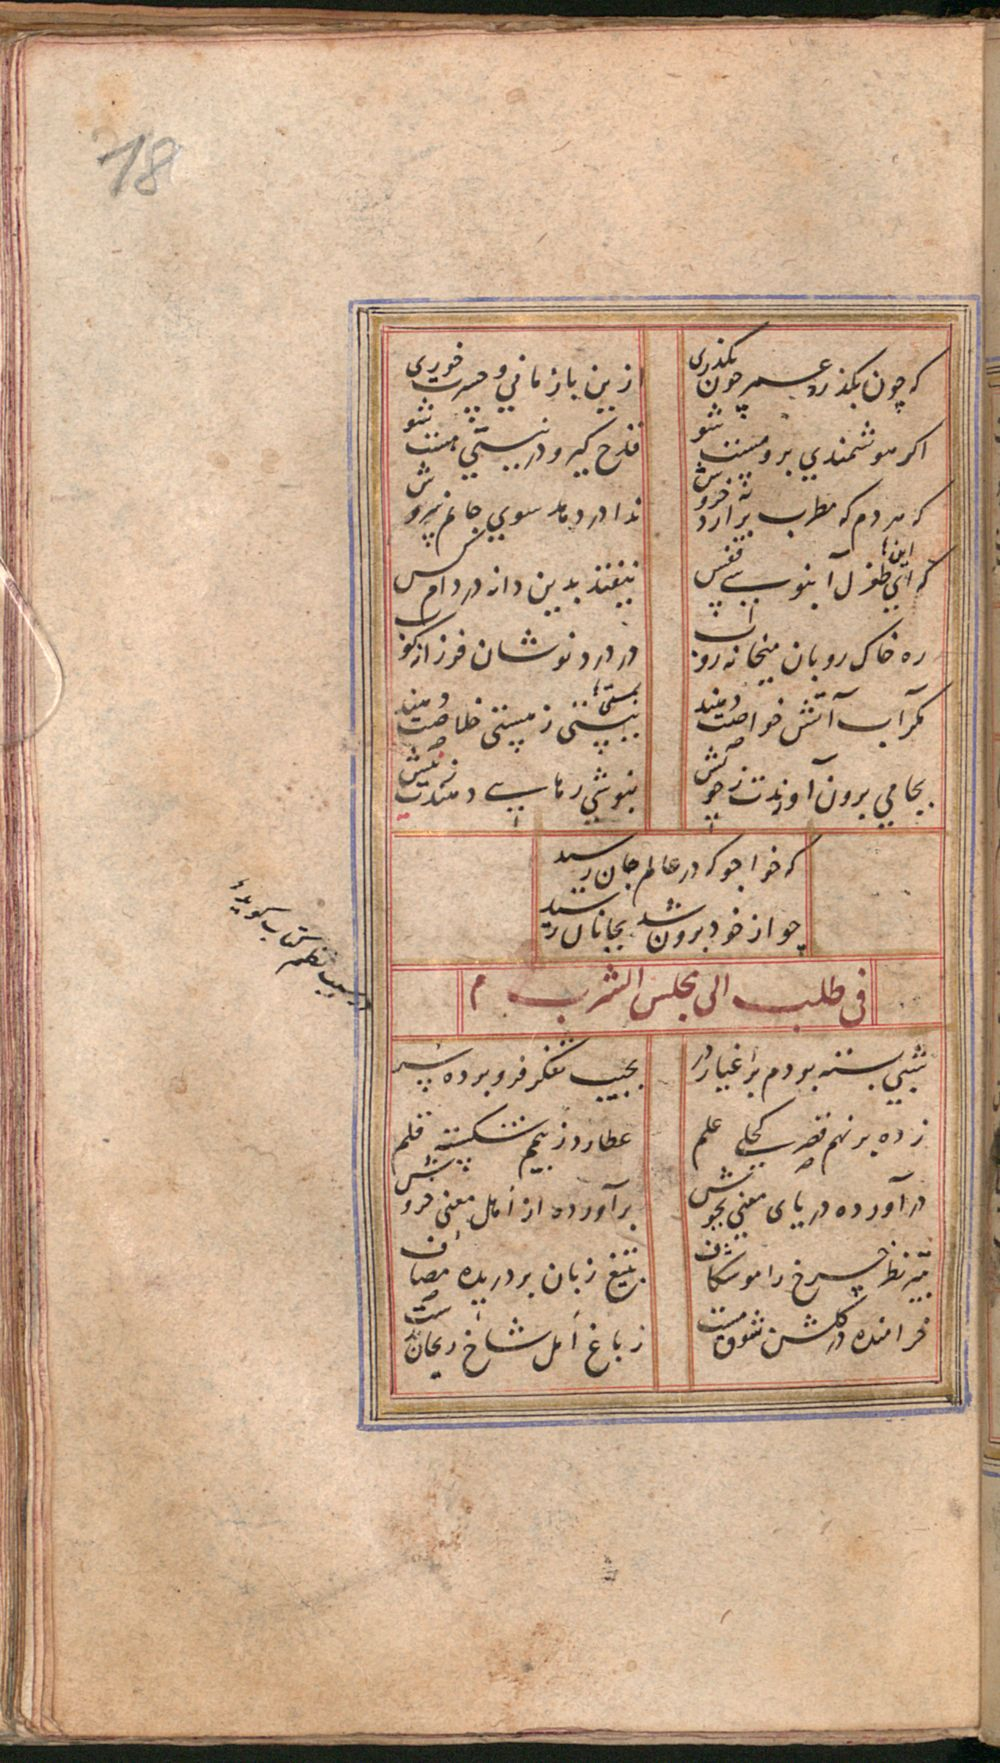 18
که چون بکذرد عمر چون بکذری
زین باز مانی و حسرت خوری
اکر هوشمندی برو مست شو
قدح کیر و در نیستی هست شو
که هر دم که مطرب برآرد خروش
ندا در دهد سوی جانم سروش
که ای طغرل آبنوسی قفس
این ها
نیفتد بدین دانه در دام کس
ره خاک روبان میخانه روب
در درد نوشان فروزان کوب
مکر آب آتش خواصت دهند
بمستی ها
ببستی ز مستی خلاصت دهند
بجامی برون آورندت ز خویش
بنوشی رهایی دهندت ز نیش
که خواجو که در عالم جان رسید
چو از خود برون شد بجانان رسید
در سبب نظم کتاب کوید
فی طلب الی مجلس الشرب م
شبی بسته بودم بر اغیار در
بجیب تفکر فرو برده سر
زده بر نهم قصر کحلی علم
عطارد ز بیمم شکسته قلم
در آورده دریای معنی بجوش
برآورده از اهل معنی خروش
بتیر نظر چرخ را موشکاف
بتیغ زبان بر دریده مصاف
خرامنده در کلشن شوق مست
ز باغ امل شاخ ریحان بدست